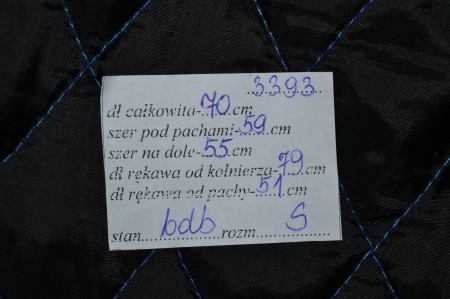 3393
dł całkowita-70 cm
szer pod pachami-59 cm
szer na dole-55 cm
dł rękawa od kołnierza-79 cm
dł rękawa od pachy-51 cm
stan bdb rozm S